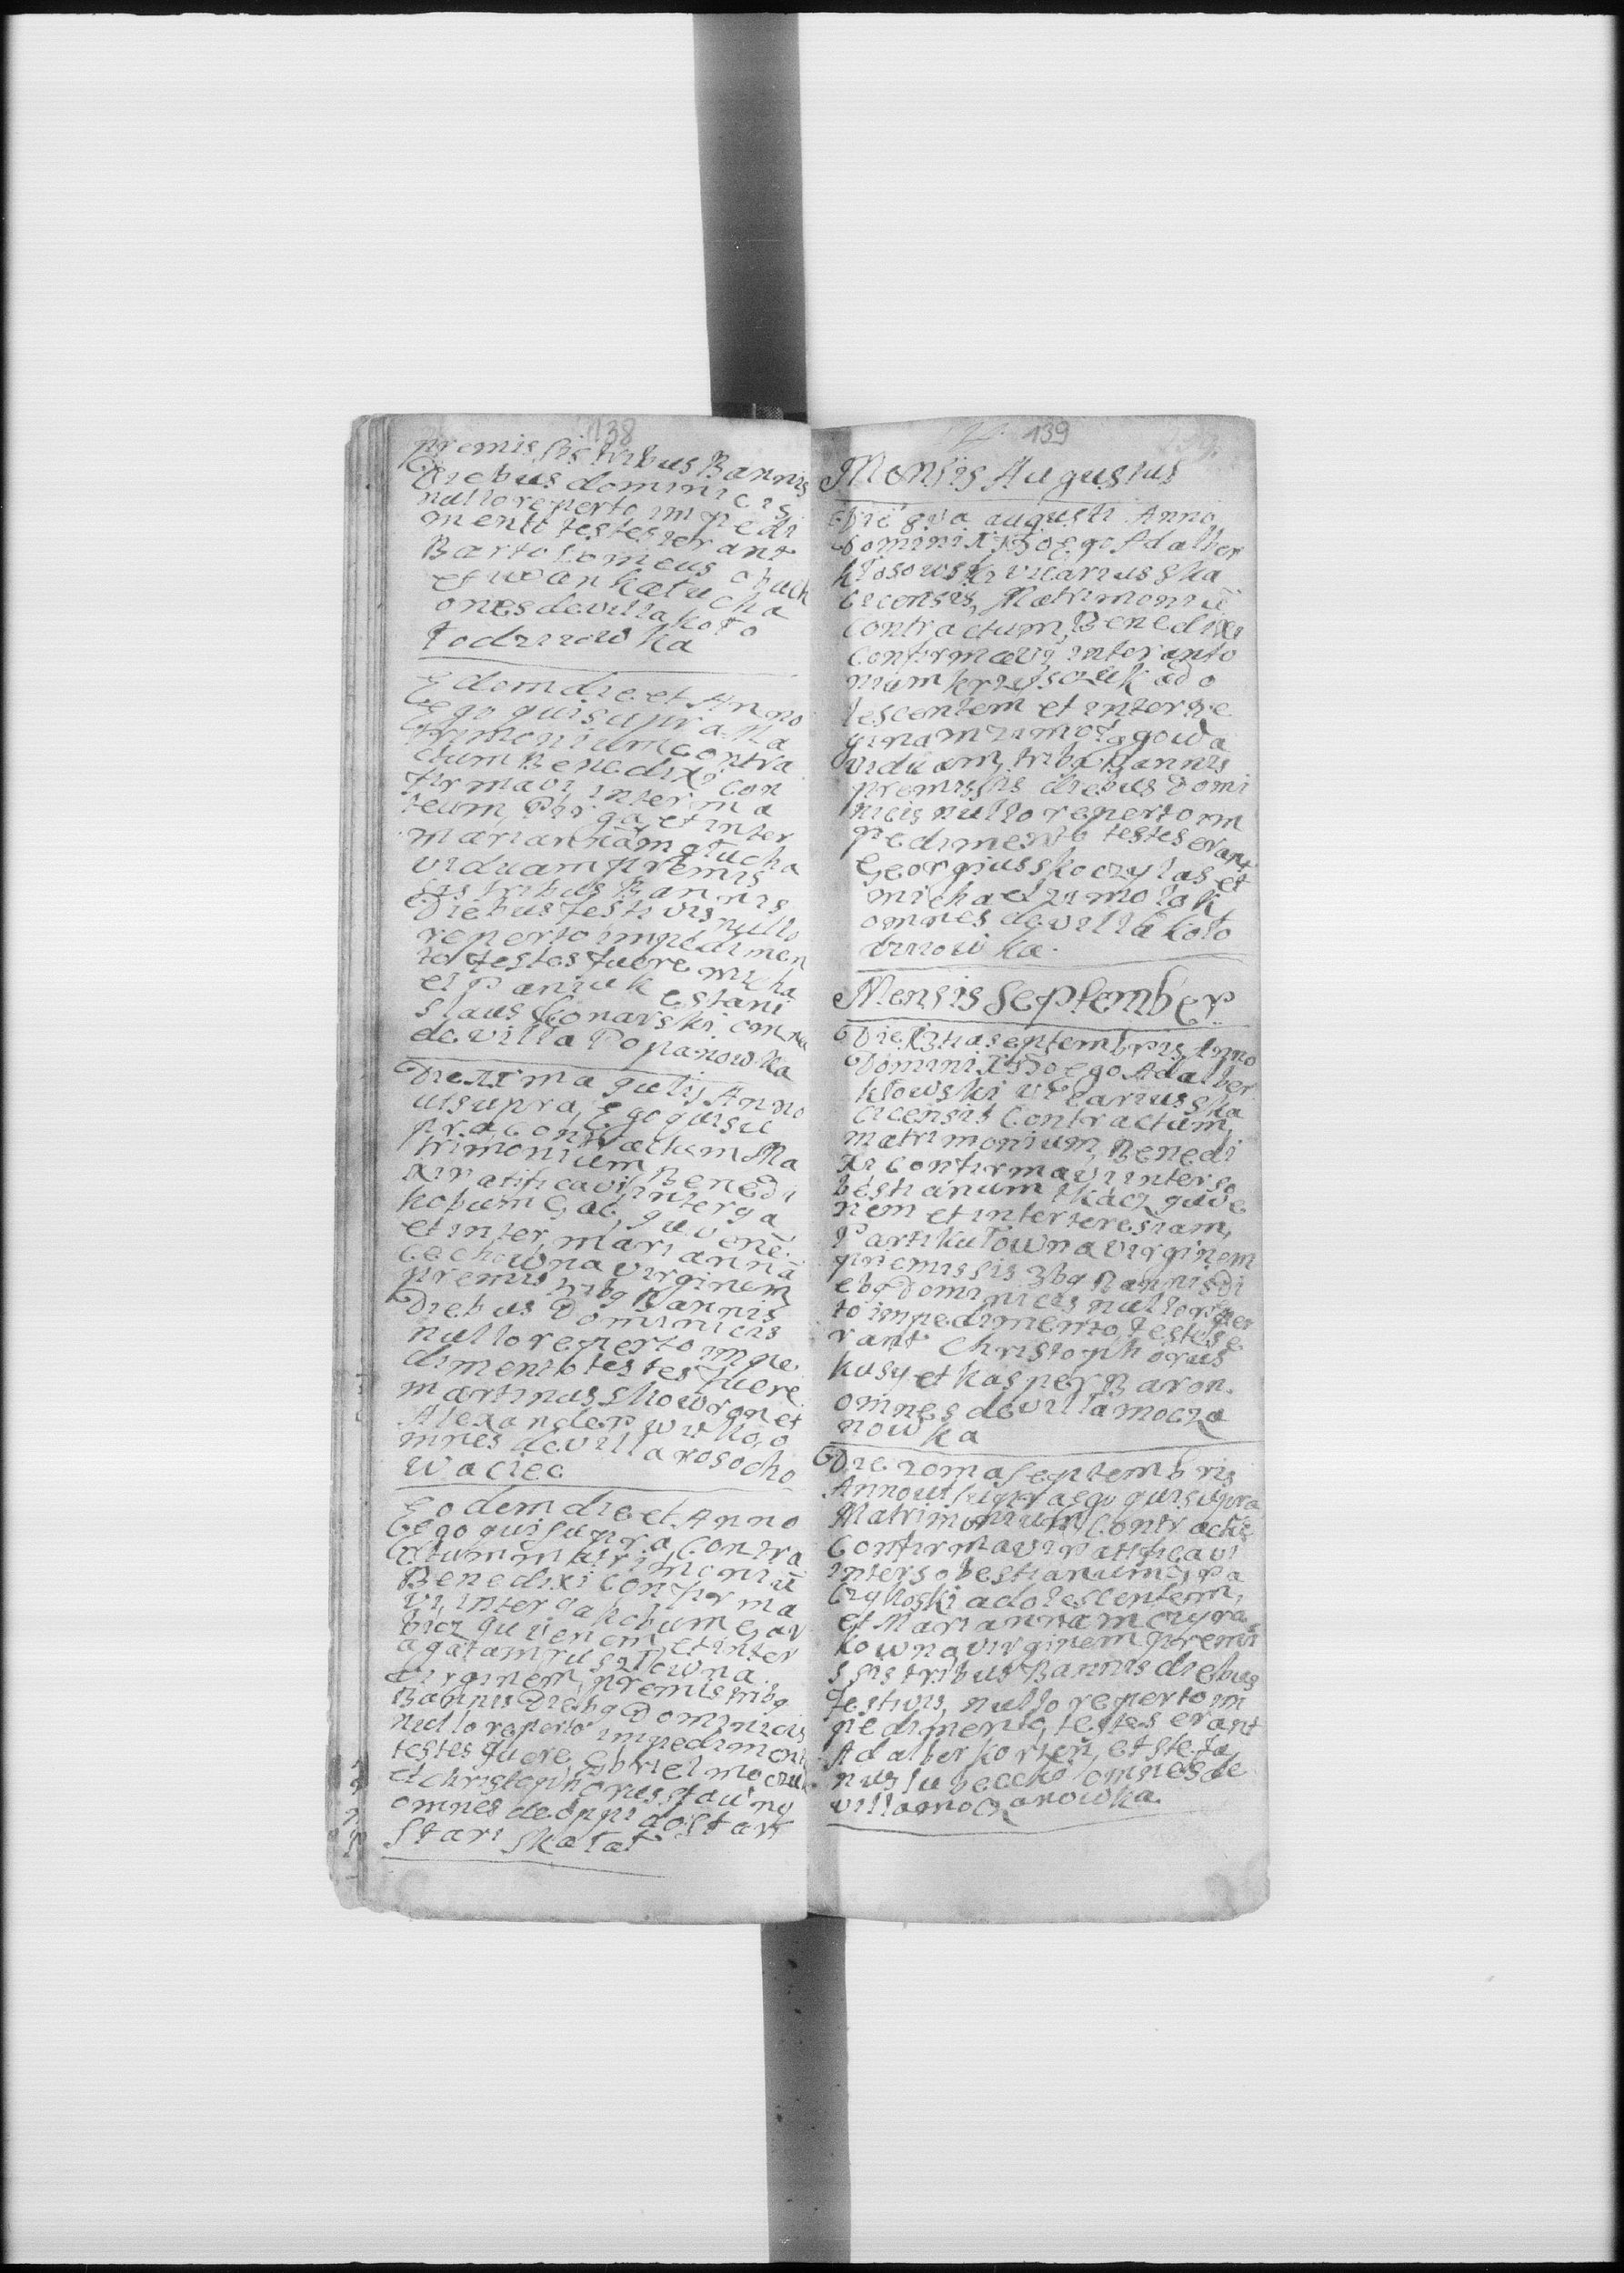 138
premissis tribus Bannis
Diebus dominicis
nullo reperto impedi
mento testes erant
Bartolomeus
et iwan katucha
omes de villa koło
łodziiowka
Edem die et Anno
Ego qui supra Ma
trimonium contra
ctum Benedixi con
firmavi inter ma
teum et inter
mariannam
viduam premis
sis tribus Bannis
Diebus festivis nullo
reperto impedimen
to testes fuere micha
el Paniuk e stani
slaus Konarski omnes
de villa Popanowka
Die XIma julij Anno
ut supra, Ego qui su
pra contractum Ma
trimonium Benedi
xi ratificavi inter ja
kobum Gac juvene
et inter mariannã
cechowna virginem
premis tribq Bannis
Diebus Dominicis
nullo reperto impe
dimento testes fuere
martinus skowron et
Alexander wilk, o
mnes de villa rosocho
waciec
Eodem die et Anno
Ego qui supra, Contra
ctum matrimoniũ
Benedixi confirma
vi, inter jakobum
juvenem et inter
agatam
virginem, premis tribq
Bannis Diebq Dominicis
nullo reperto impediment
testes fuere, Gabriel
et christophorus stawny
omnes de oppido star
Stari skałat
139
Mensis Augustus
Die 8va augusti Anno
Domini 1730 ego Adalber
kłosowski vicarius ska
licensis, Matrimoniũ
contractum, Benedixi
confirmavi inter anto
nium krzysczuk ado
lescentem et inter re
ginam
viduam, tribq Bannis
premissis diebus Domi
nicis nullo reperto im
pedimento testes erant
Georgius skoczylas et
michael zimolak
omnes de villa koło
dziiowka.
Mensis September
Die 3tia septembris Anno
Domini 1730 ego Adalber
kłowski vicarius ska
licensis Contractum,
matrimonium, Benedi
xi confirmavi inter so
bestianum tkacz juve
nem et inter teresiam,
Partikułowna virginem
premissis 3bq Bannis Di
ebq Dominicis nullo reper
to impedimento, testes e
rant Christophorus
kusy et kasper Baron.
omnes de villa mocza
nowka
Die 10ma septembris
Anno ut supra ego qui supra
Matrimonium Contractũ
Confirmavi ratificavi
inter sobestianum, pa
czykoski adolescentem,
et Mariannam czyra
kowna virginem premi
ssis tribus Bannis diebus
festivis, nullo reperto im
pedimento, testes erant
Adalber korzeń, et stefa
nus lubecko omnes de
villa moczanowka.